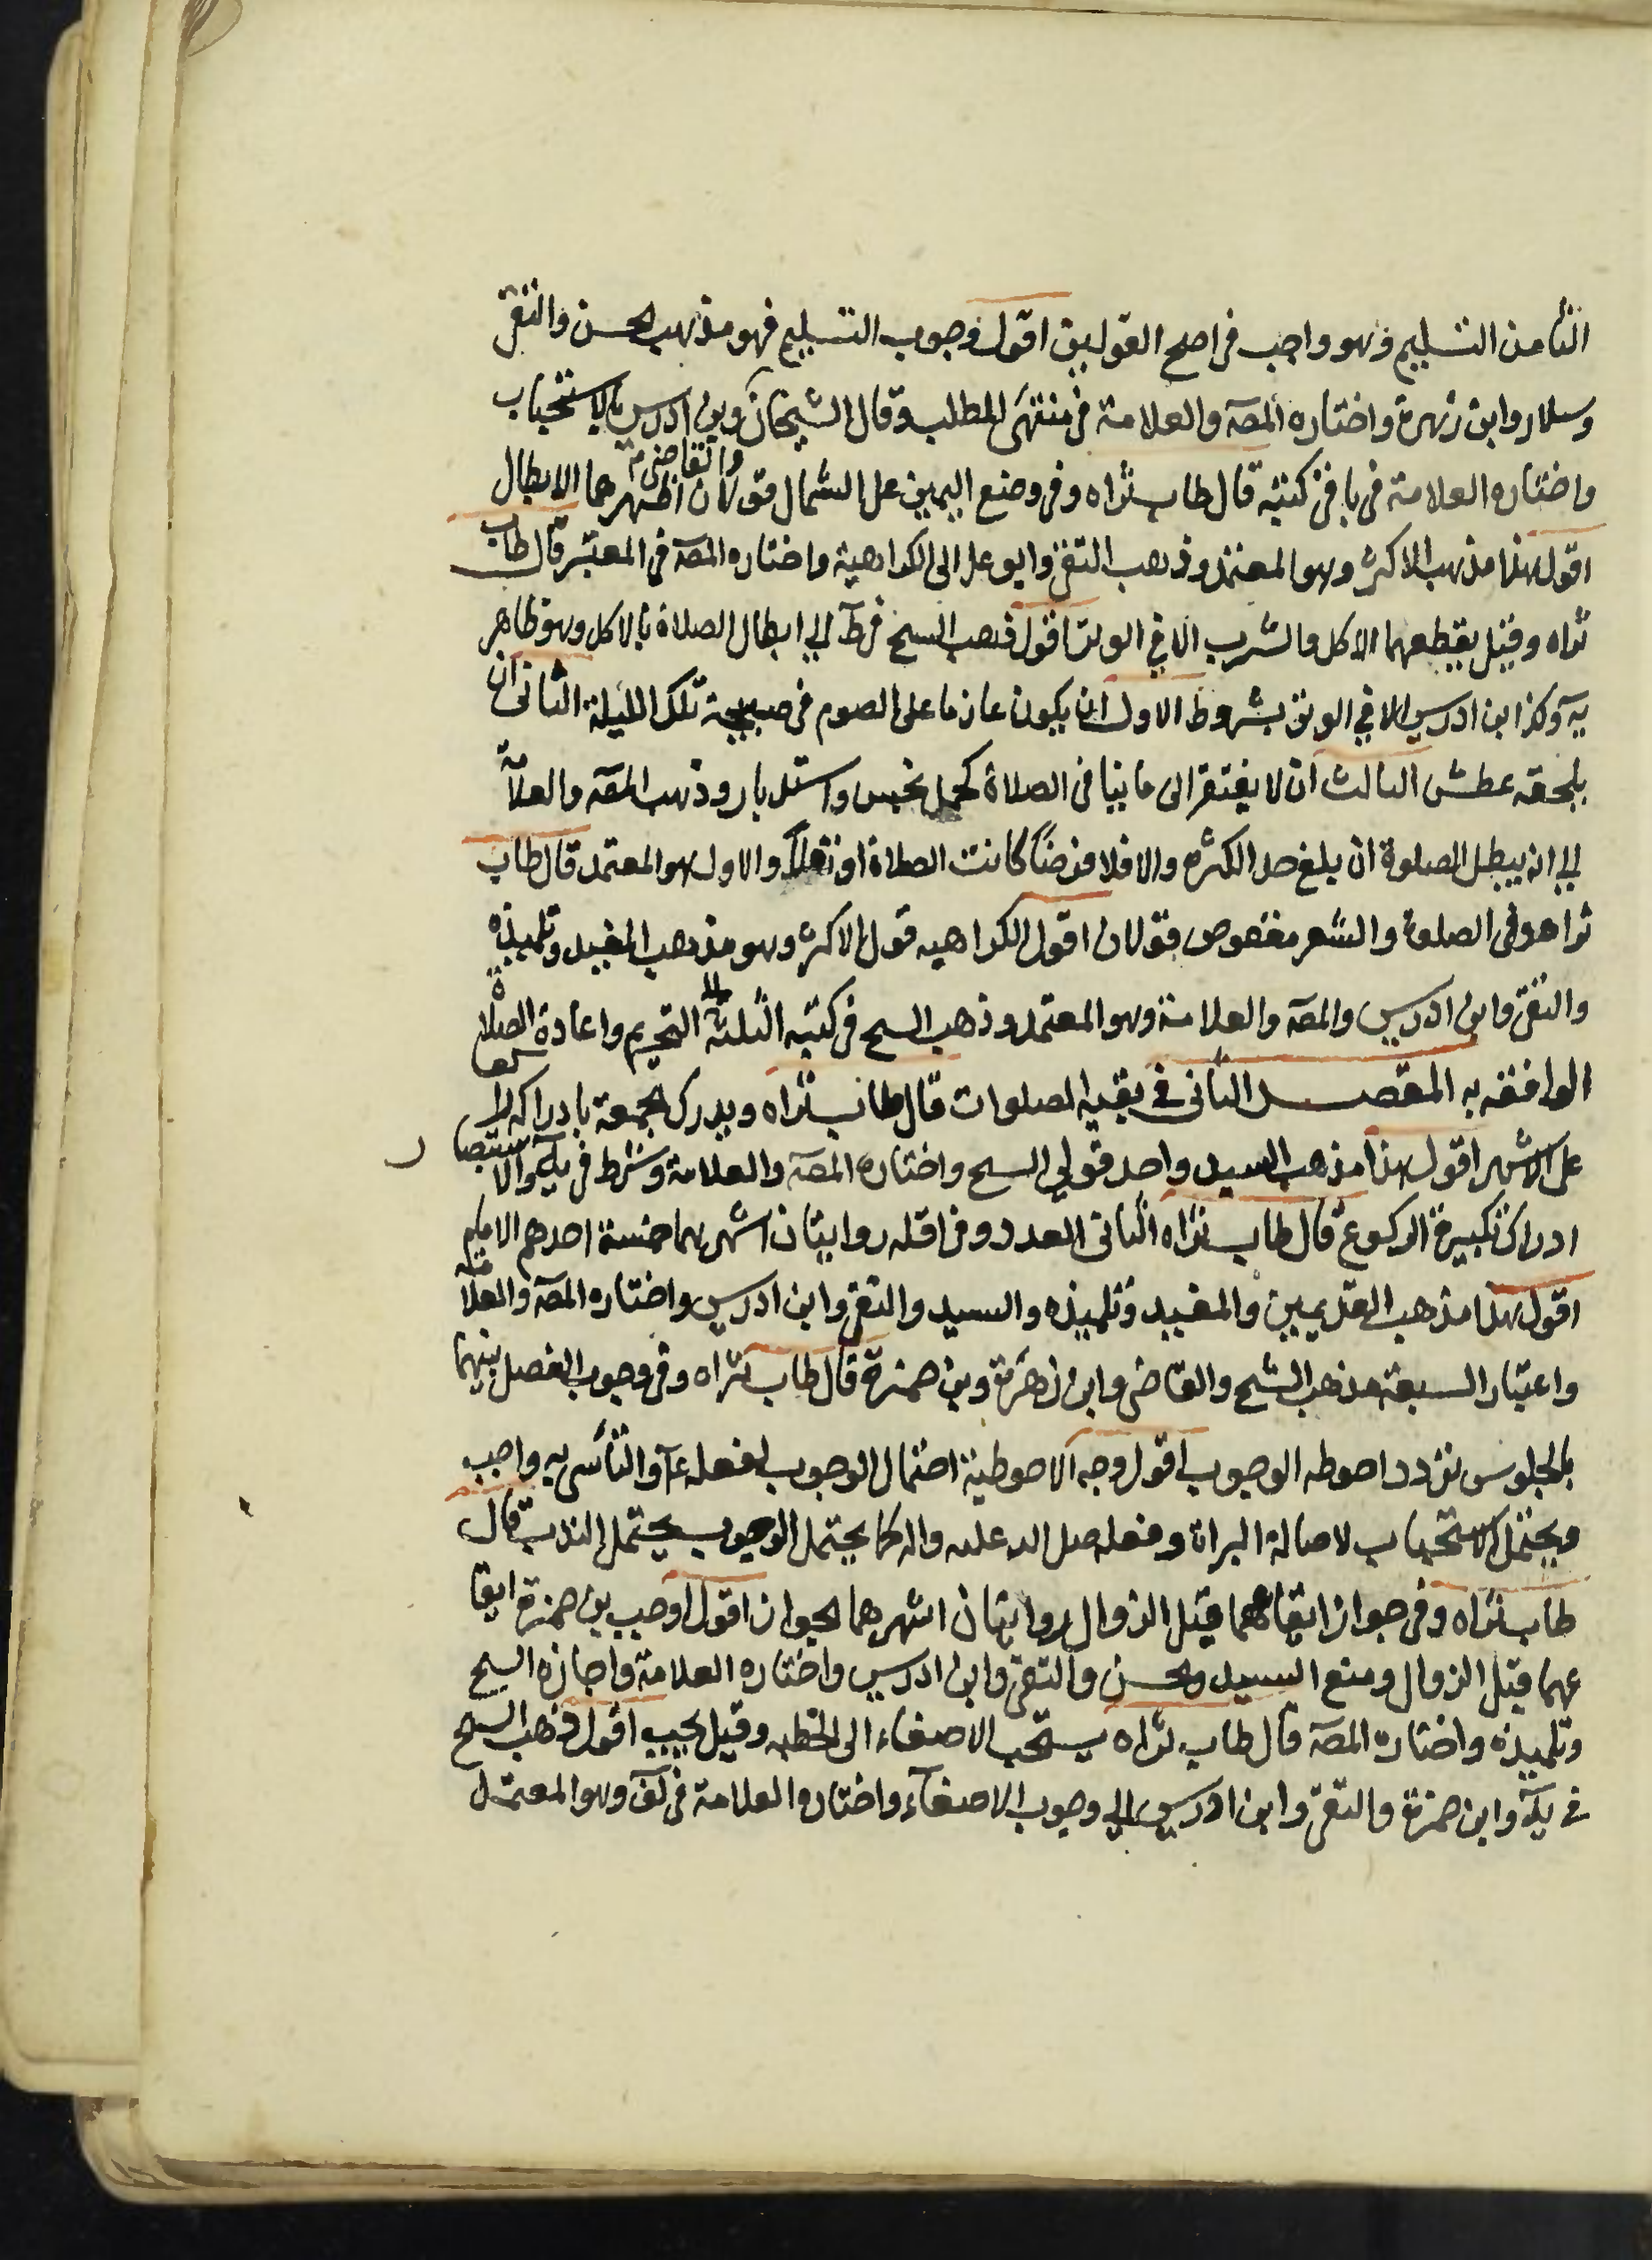 الثامن التسليم وهو واجب في اصح القولين اقول وجوب التسليم فهو مذهب الحسن والتقى
وسلار وابن زهرة واختاره المصة والعلامة في منتهى المطلب وقال الشيخان وبن ادريس بالاستحباب
والقاضى
واختاره العلامة في باقى كتبه قال طاب ثراه وفى وضع اليمين على الشمال قولان اظهرهما الابطال
اقول هذا مذهب الاكثر وهو المعتمد وذهب التقى وابو على الى الكراهية واختاره المصة في المعتبر قال طاب
ثراه وقيل يقطعهما الاكل والشرب الا في الوتر اقول ذهب الشيخ في ط الى ابطال الصلاة بالاكل وهو ظاهر
يه وكذا ابن ادريس الا في الوتر بشروط الاول ان يكون عازما على الصوم في صبيحة تلك الليلة الثانى ان
يلحقه عطش الثالث ان لا يفتقر الى ما ينافى الصلاة كحمل نجس واستدبار وذهب المصة والعلامة
الى انه يبطل الصلوة ان بلغ حد الكثره والا فلا فرضًا كانت الصلاة او نفلاً والاول هو المعتمد قال طاب
ثراه وفى الصلوة والشعر معقوص قولان اقول الكراهيه قول الاكثر وهو مذهب المفيد وتلميذه
والتقى وابن ادريس والمصة والعلامة وهو المعتمد وذهب الشيخ في كتبه الثلثة الى التحريم واعادة الصلاة
الواقعة به المقصد الثانى في بقية الصلوات قال طاب ثراه ويدرك الجمعة بادراكه راكعا
على الاشهر اقول هذا مذهب السيد واحد قولي الشيخ واختاره المصة والعلامة وشرط في يه والاستبصار
ادراك تكبيرة الركوع قال طاب ثراه الثانى العدد وفى اقله روايتان اشهرهما خمسة احدهم الامام
اقول هذا مذهب القديمين والمفيد وتلميذه والسيد والتقى وابن ادريس واختاره المصة والعلامة
واعتبار السبعة مذهب الشيخ والقاضى وابن زهرة وبن حمزة قال طاب ثراه وفى وجوب الفصل بينهما
بالجلوس تردد احوطه الوجوب اقول وجه الاحوطية احتمال الوجوب لفعله ع والتأسى به واجب
ويحتمل الاستحباب لاصالة البراة وفعله صلى الله عليه واله كما يحتمل الوجوب يحتمل الندب قال
طاب ثراه وفى جواز ايقاعهما قبل الزوال روايتان اشهرهما الجواز اقول اوجب بن حمزة ايقا
عهما قبل الزوال ومنع السيد والحسن والتقى وابن ادريس واختاره العلامة واجازه الشيخ
وتلميذه واختاره المصة قال طاب ثراه يستحب الاصغاء الى الخطبه وقيل يجب اقول ذهب الشيخ
في يه وابن حمزة والتقى وابن ادريس الى وجوب الاصغاء واختاره العلامة في لف وهو المعتمد